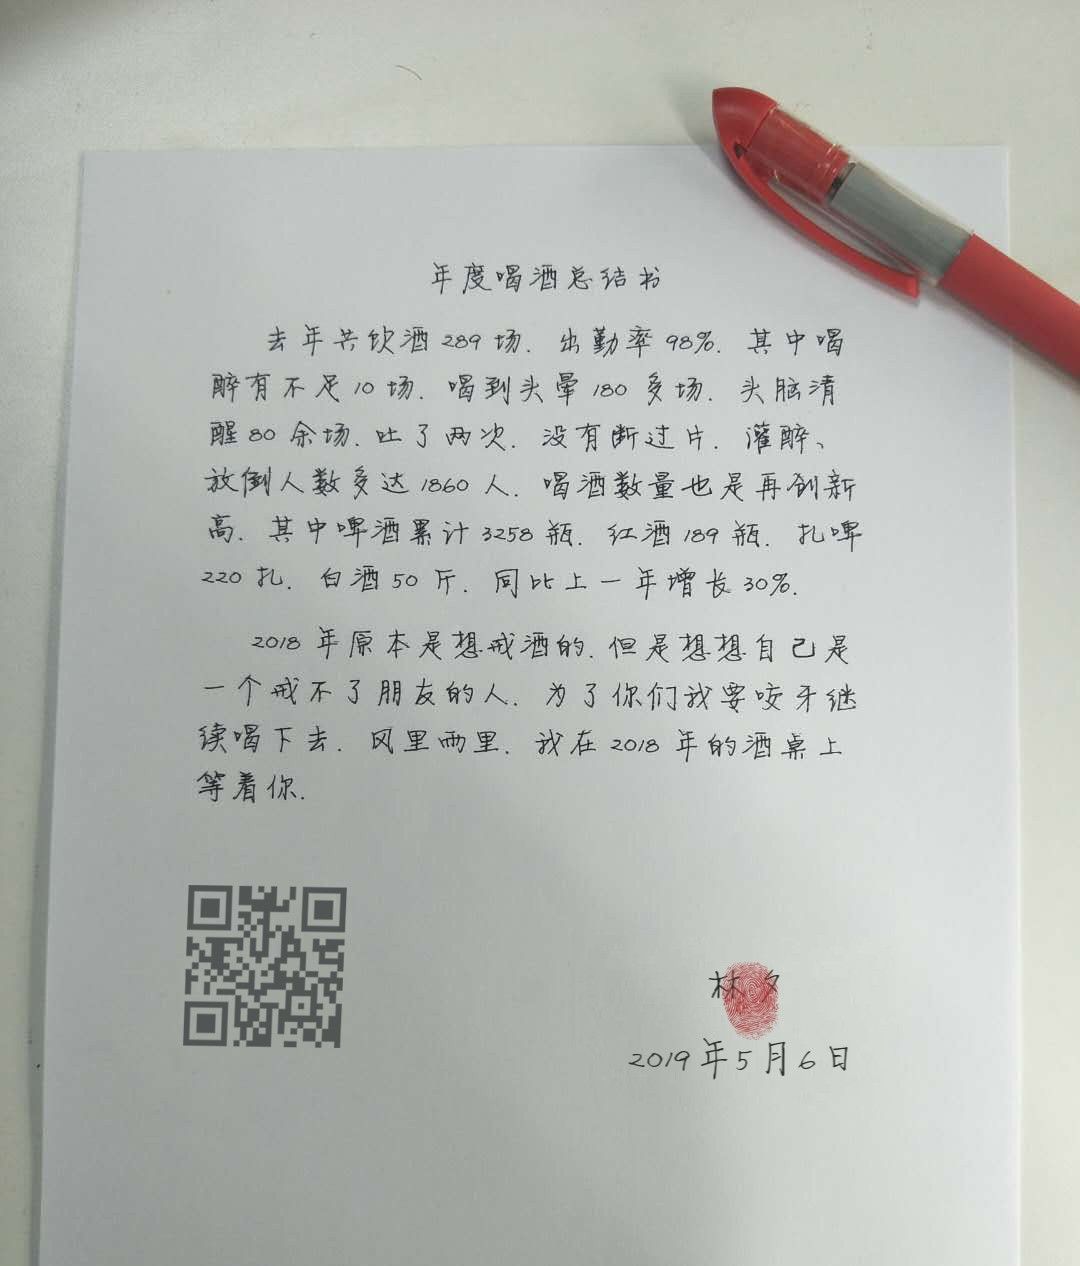 年度喝酒总结书
去年共饮酒289场.出勤率98%.其中喝
醉有不足10场.喝到头晕180多场.头脑清
醒80余场.吐了两次.没有断过片.灌醉、
放倒人数多达1860人.喝酒数量也是再创新
高.其中啤酒累计3258瓶.红酒189瓶.扎啤
220扎.白酒50斤.同比上一年增长30%.
2018年原本是想戒酒的.但是想想自己是
一个戒不了朋友的人.为了你们我要咬牙继
续喝下去.风里雨里.我在2018年的酒桌上
等着你.
林夕
2019年5月6日